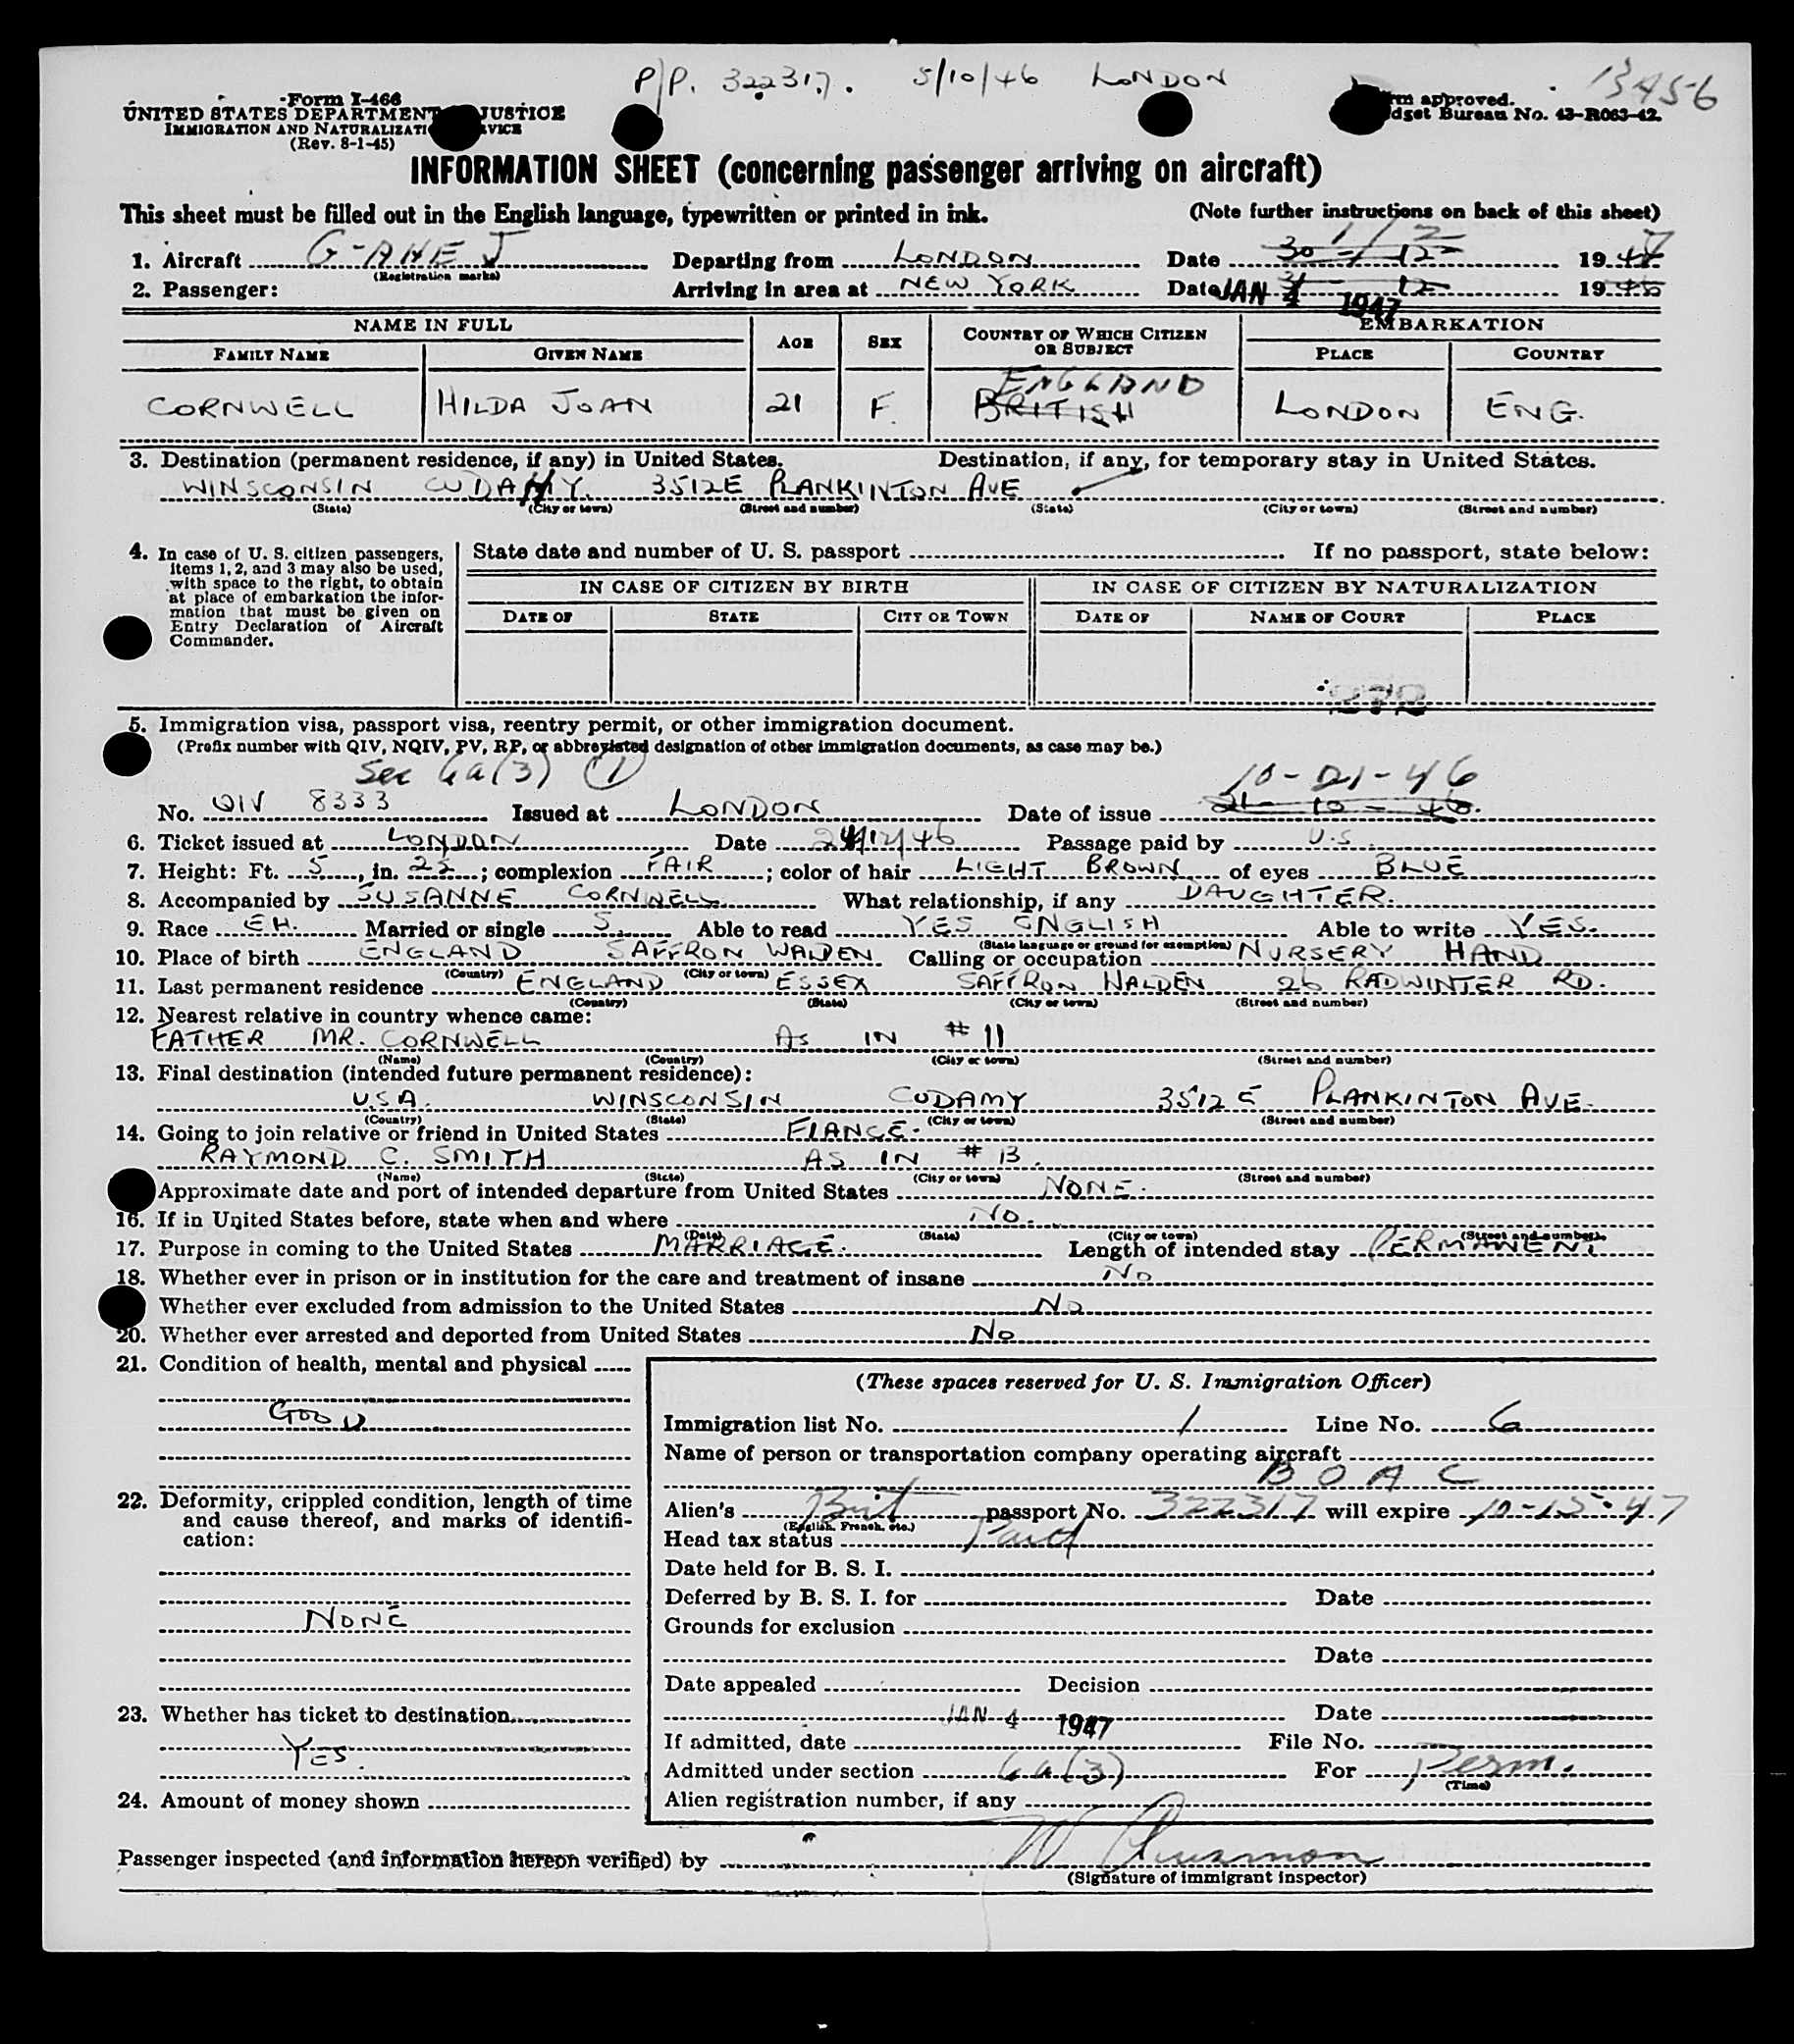 P/P. 322317. 5/10/46 LONDON 13456
Form I-466
UNITED STATES DEPARTMENT JUSTICE
IMMIGRATION AND NATURALIZATI RVICE
(Rev. 8-1-45)
rm approved.
dget Bureau No. 43-R063-42.
INFORMATION SHEET (concerning passenger arriving on aircraft)
This sheet must be filled out in the English language, typewritten or printed in ink. (Note further instructions on back of this sheet)
1. Aircraft G-AHEJ Departing from LONDON Date 30 - 12 1/2 1947
(Registration marks)
2. Passenger: Arriving in area at NEW YORK Date JAN 4 1947 31 - 12 1946
NAME IN FULL AGE SEX COUNTRY OF WHICH CITIZEN OR SUBJECT EMBARKATION
FAMILY NAME GIVEN NAME PLACE COUNTRY
ENGLAND
CORNWELL HILDA JOAN 21 F. BRITISH LONDON ENG.
3. Destination (permanent residence, if any) in United States. Destination, if any, for temporary stay in United States.
WINSCONSIN CUDAHY. 3512E PLANKINTON AVE
(State) (City or town) (Street and number) (State) (City or town) (Street and number)
4. In case of U. S. citizen passengers, items 1, 2, and 3 may also be used, with space to the right, to obtain at place of embarkation the information that must be given on Entry Declaration of Aircraft Commander.
State date and number of U. S. passport If no passport, state below:
IN CASE OF CITIZEN BY BIRTH IN CASE OF CITIZEN BY NATURALIZATION
DATE OF STATE CITY OR TOWN DATE OF NAME OF COURT PLACE
5. Immigration visa, passport visa, reentry permit, or other immigration document.
(Prefix number with QIV, NQIV, PV, RP, or abbreviated designation of other immigration documents, as case may be.)
Sec 6a(3) (1) 10-21-46
No. QIV 8333 Issued at LONDON Date of issue 21 - 10 - 46.
6. Ticket issued at LONDON Date 24/12/46 Passage paid by U.S.
7. Height: Ft. 5, in. 2½; complexion FAIR; color of hair LIGHT BROWN of eyes BLUE
8. Accompanied by SUSANNE CORNWELL What relationship, if any DAUGHTER.
9. Race EH. Married or single S. Able to read YES ENGLISH Able to write YES.
(State language or ground for exemption)
10. Place of birth ENGLAND SAFFRON WALDEN Calling or occupation NURSERY HAND
(Country) (City or town)
11. Last permanent residence ENGLAND ESSEX SAFFRON WALDEN 26 RADWINTER RD.
(Country) (State) (City or town) (Street and number)
12. Nearest relative in country whence came:
FATHER MR. CORNWELL AS IN # 11
(Name) (Country) (City or town) (Street and number)
13. Final destination (intended future permanent residence):
U.S.A. WINSCONSIN CUDAMY 3512 E PLANKINTON AVE.
(Country) (State) (City or town) (Street and number)
14. Going to join relative or friend in United States FIANCE.
RAYMOND C. SMITH AS IN # 13.
(Name) (State) (City or town) (Street and number)
Approximate date and port of intended departure from United States NONE.
16. If in United States before, state when and where NO.
(Date) (State) (City or town) (Street and number)
17. Purpose in coming to the United States MARRIAGE. Length of intended stay PERMANENT
18. Whether ever in prison or in institution for the care and treatment of insane NO
Whether ever excluded from admission to the United States NO
20. Whether ever arrested and deported from United States NO
21. Condition of health, mental and physical
GOOD
22. Deformity, crippled condition, length of time and cause thereof, and marks of identification:
NONE
23. Whether has ticket to destination
YES.
24. Amount of money shown
(These spaces reserved for U. S. Immigration Officer)
Immigration list No. 1 Line No. 6
Name of person or transportation company operating aircraft
B O A C
Alien's Brit passport No. 322317 will expire 10-15-47
(English, French, etc.)
Head tax status Paid
Date held for B. S. I.
Deferred by B. S. I. for Date
Grounds for exclusion
Date
Date appealed Decision
Date
If admitted, date JAN 4 1947 File No.
Admitted under section 6a(3) For Perm.
(Time)
Alien registration number, if any
Passenger inspected (and information hereon verified) by
(Signature of immigrant inspector)